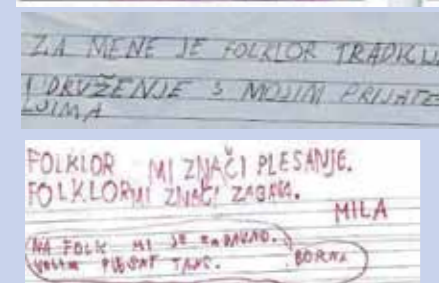 ZA MENE JE FOLKLOR TRADICIJA
I DRUŽENJE S MOJIM PRIJATE
LJIMA
FOLKLOR MI ZNAČI PLESANJE.
FOLKLOR MI ZNAČI ZABAVA.
MILA
NA FOLK MI JE ZABAVNO.
VOLIM PLESAT TANC. BORNA